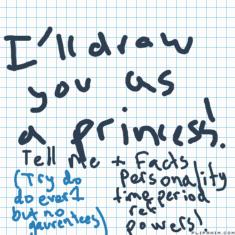 I'll draw
you as
a princess!
Tell me + Facts
(Try do Personality
do ever1 time period
but no ref
gaurentees) powers!
FLIPANIM.COM